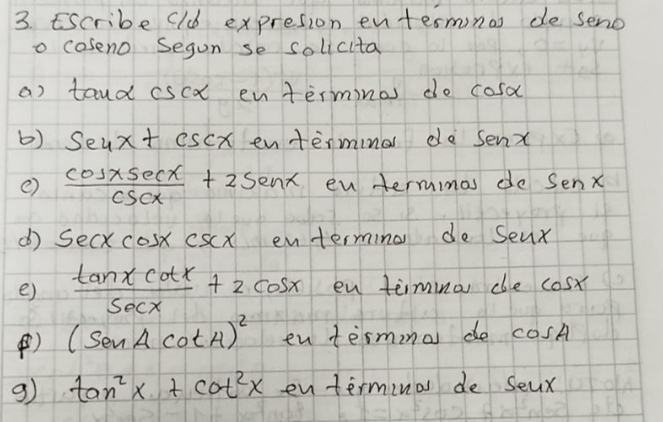 3. Escribe c/d expresion en terminos de seno
o coseno Segun se solicita
a) tanα cscα en términos de cosα
b) Senx + cscx en términos de senx
c) cosxsecx/cscx + 2senx en terminos de senx
d) Secx cosx cscx en termino de Senx
e) tanx cotx/Secx + 2 cosx en término de cosx
f) (Sen A cot A)² en términos de cosA
g) tan²x + cot²x en términos de senx